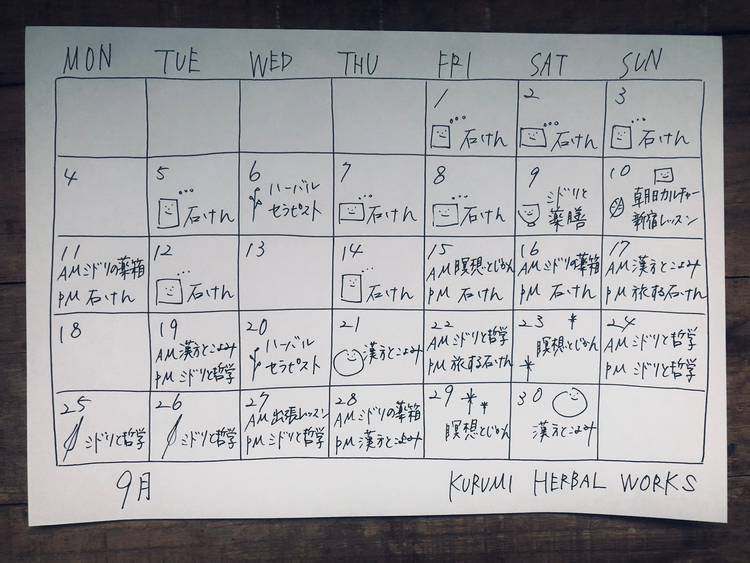 MON TUE WED THU FRI SAT SUN
1
石けん
2
石けん
3
石けん
4
5
石けん
6 ハーバル
セラピスト
7
石けん
8
石けん
9 ミドリと
薬膳
10
朝日カルチャー
新宿レッスン
11
AM ミドリの薬箱
PM 石けん
12
石けん
13
14
石けん
15
AM 瞑想とじかん
PM 石けん
16
AM ミドリの薬箱
PM 石けん
17
AM 漢方とこよみ
PM 旅する石けん
18
19
AM 漢方とこよみ
PM ミドリと哲学
20
ハーバル
セラピスト
21
漢方とこよみ
22
AM ミドリと哲学
PM 旅する石けん
23
瞑想とじかん
24
AM ミドリと哲学
PM ミドリと哲学
25
ミドリと哲学
26
ミドリと哲学
27
AM 出張レッスン
PM ミドリと哲学
28
AM ミドリの薬箱
PM 漢方とこよみ
29
瞑想とじかん
30
漢方とこよみ
9月 KURUMI HERBAL WORKS